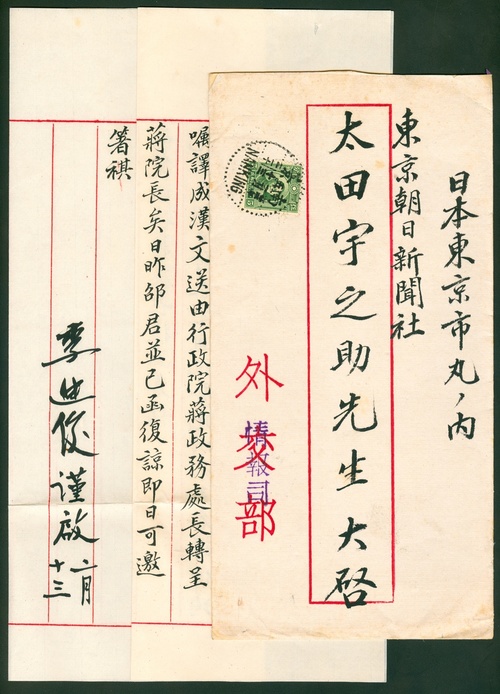 日本東京市丸ノ内
東京朝日新聞社
太田宇之助先生大啓
NANKING
外交部
情報司
囑譯成漢文送由行政院蔣政務處長轉呈
蔣院長矣日昨邵君並已函復諒即日可邀
箸祺
李迪俊謹啟
二月
十三